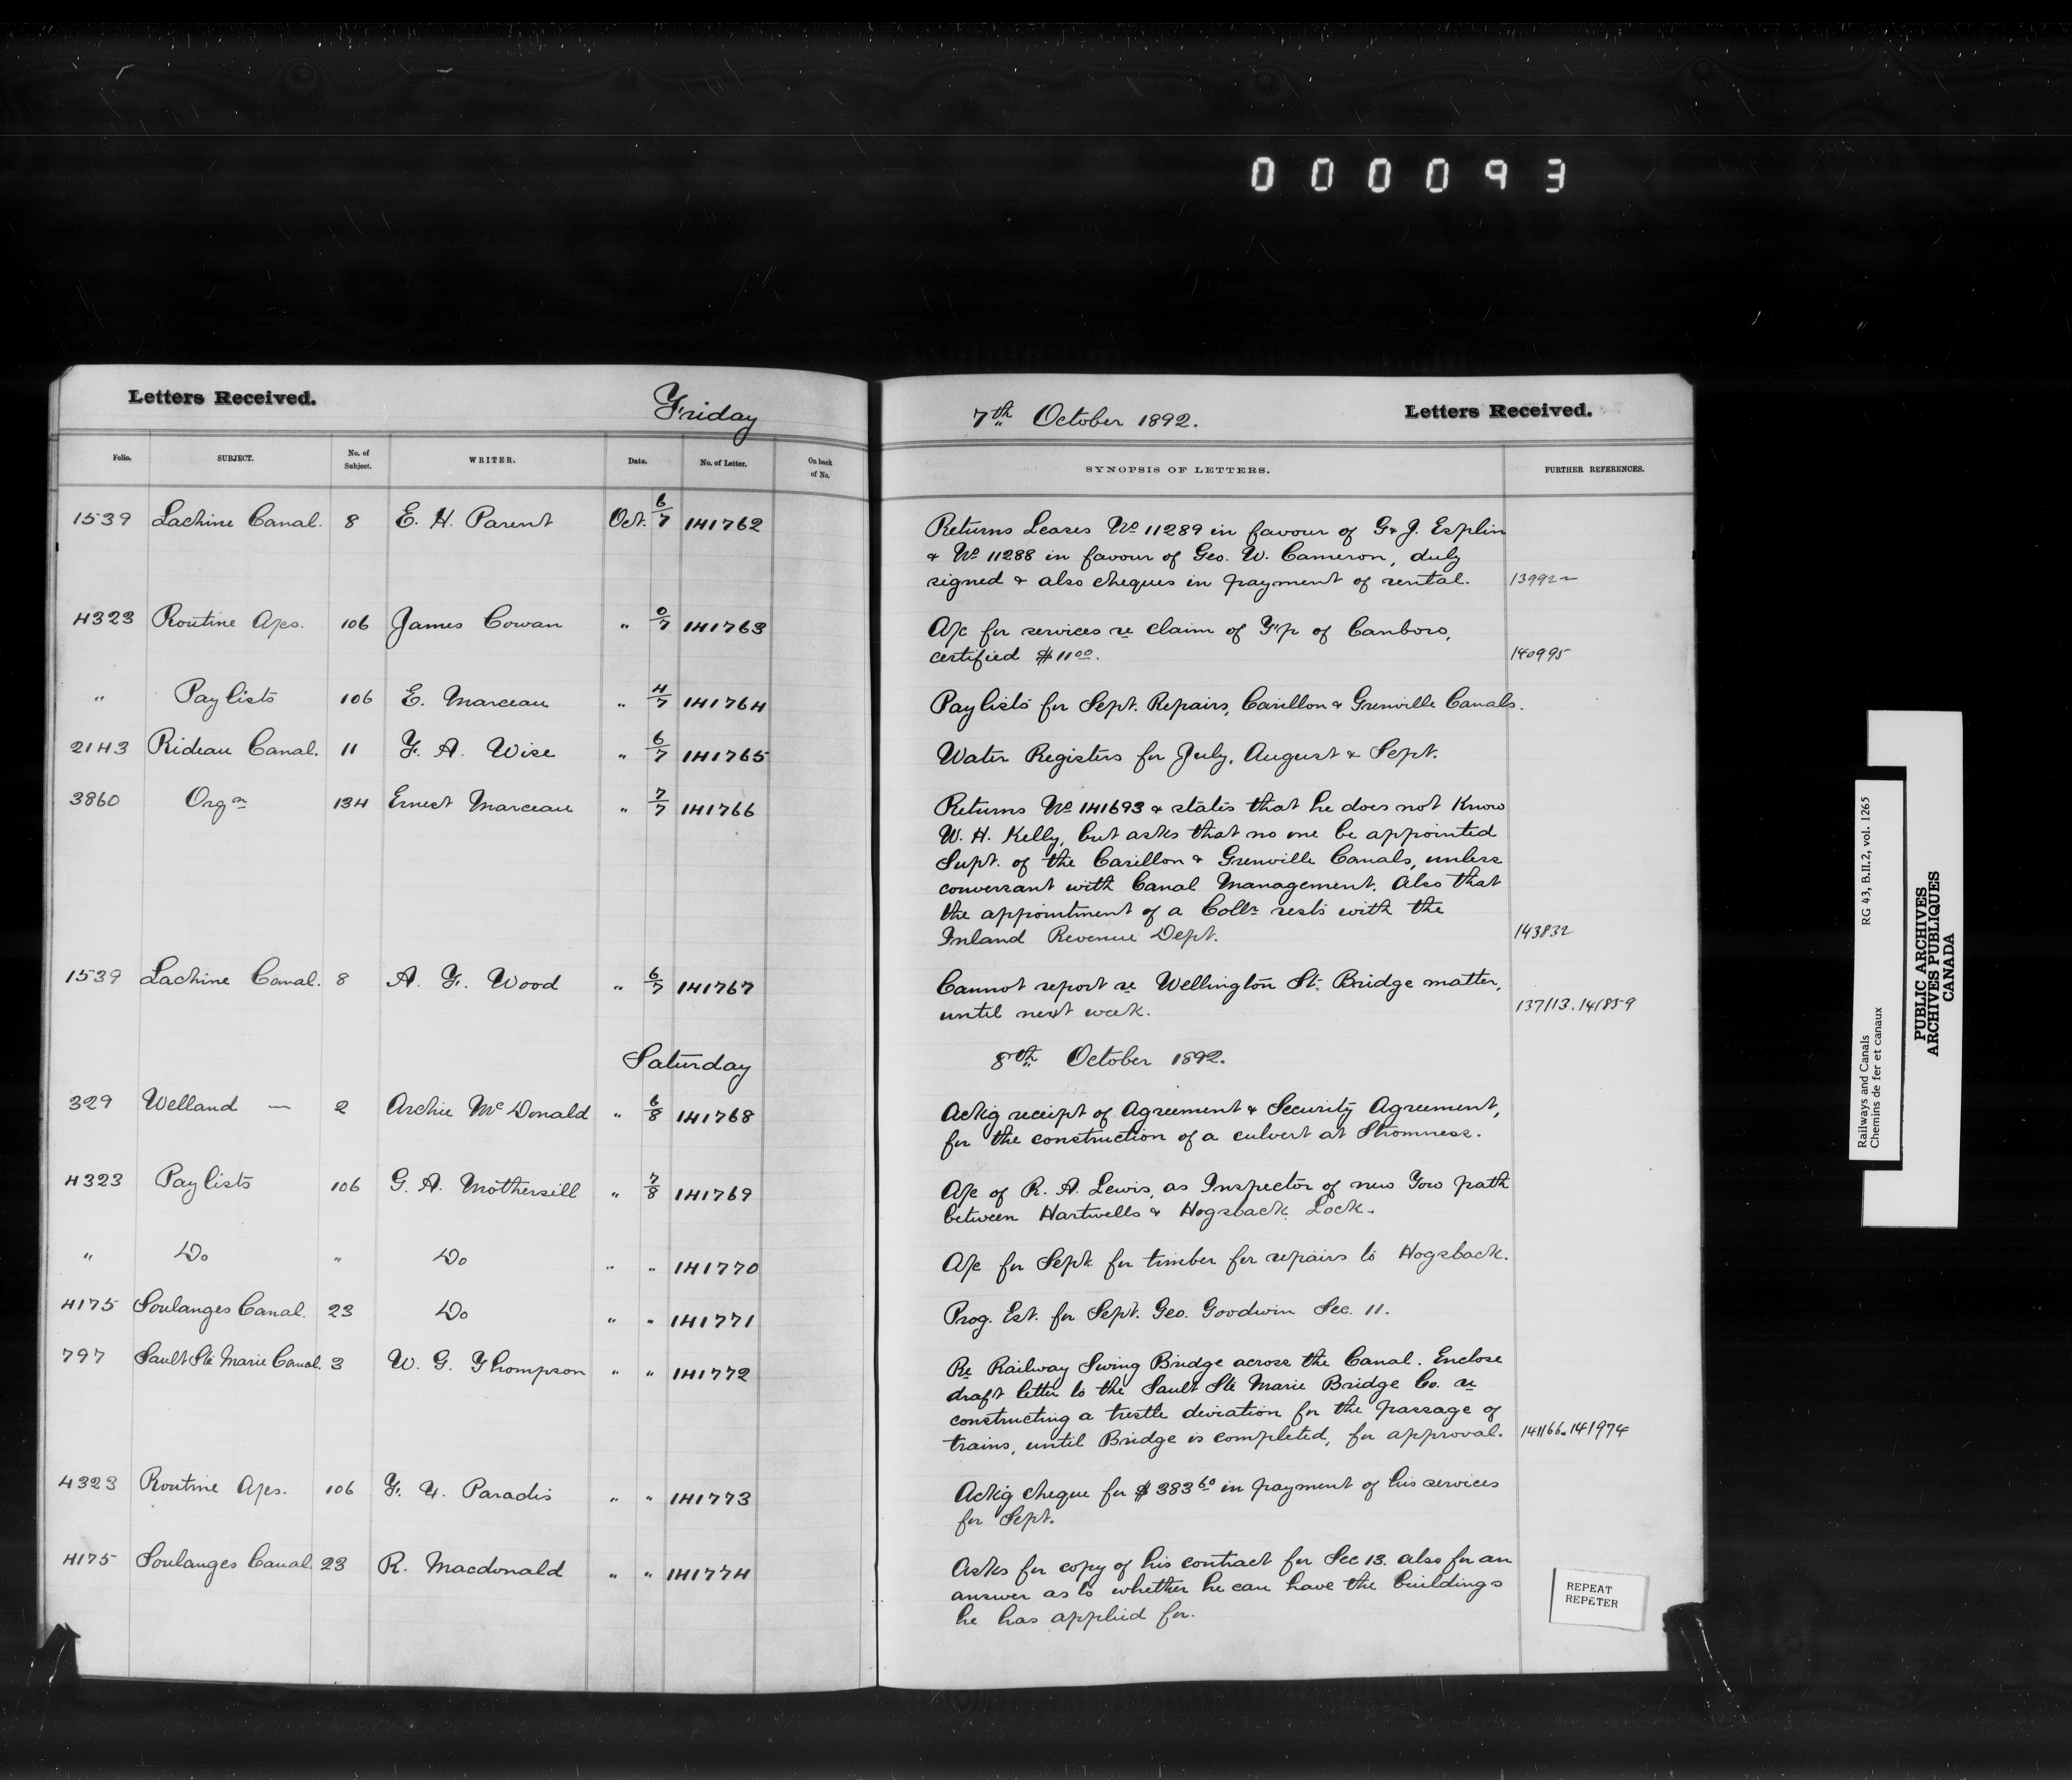 000093
Letters Received. Friday 7th October 1892. Letters Received.
Folio. SUBJECT. No. of Subject. WRITER. Date. No. of Letter. On back of No. SYNOPSIS OF LETTERS. FURTHER REFERENCES.
1539 Lachine Canal. 8 E. H. Parent Oct. 6/7 141762 Returns Leases No 11289 in favour of G & J. Esplin
& No 11288 in favour of Geo. W. Cameron, duly
signed & also cheques in payment of rental. 13992
4323 Routine A/cs. 106 James Cowan " 0/7 141763 A/c for services re claim of T'p of Canboro,
certified $11.00. 140995
" Pay lists 106 E. Marceau " 4/7 141764 Pay lists for Sept. Repairs, Carillon & Grenville Canals.
2143 Rideau Canal. 11 F. A. Wise " 6/7 141765 Water Registers for July, August & Sept.
3860 Orgn 134 Ernest Marceau " 7/7 141766 Returns No 141693 & states that he does not know
W. H. Kelly, but asks that no one be appointed
Supt. of the Carillon & Grenville Canals, unless
conversant with Canal Management. Also that
the appointment of a Collr rests with the
Inland Revenue Dept. 143832
1539 Lachine Canal. 8 A. F. Wood " 6/7 141767 Cannot report re Wellington St. Bridge matter,
until next week. 137113. 141859
Saturday 8th October 1892.
329 Welland — 2 Archie McDonald " 6/8 141768 Ackg receipt of Agreement & Security Agreement,
for the construction of a culvert at Stromness.
4323 Pay lists 106 G. A. Mothersill " 7/8 141769 A/c of R. A. Lewis, as Inspector of new Tow path
between Hartwells & Hogsback Lock.
" Do " Do " " 141770 A/c for Sept. for timber for repairs to Hogsback.
4175 Soulanges Canal. 23 Do " " 141771 Prog. Est. for Sept. Geo. Goodwin Sec. 11.
797 Sault Ste Marie Canal. 3 W. G. Thompson " " 141772 Re Railway Swing Bridge across the Canal. Enclose
draft letter to the Sault Ste Marie Bridge Co. re
constructing a trestle deviation for the passage of
trains, until Bridge is completed, for approval. 141166. 141974
4323 Routine A/cs. 106 Paradis " " 141773 Ackg cheque for $383.60 in payment of his services
for Sept.
4175 Soulanges Canal. 23 R. Macdonald " " 141774 Asks for copy of his contract for Sec 13. also for an
answer as to whether he can have the buildings
he has applied for.
REPEAT
REPÉTER
Railways and Canals RG 43, B.II.2, vol. 1265
Chemins de fer et canaux
PUBLIC ARCHIVES
ARCHIVES PUBLIQUES
CANADA